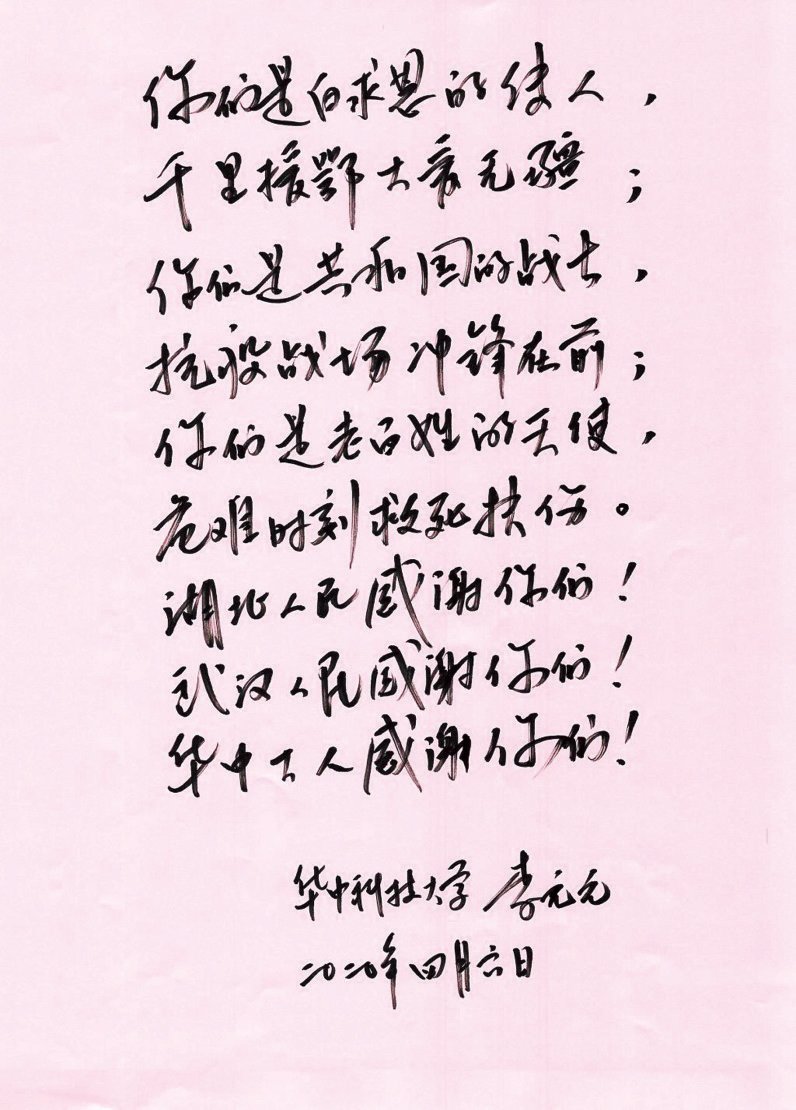 你们是白求恩的使人，
千里援鄂大爱无疆；
你们是共和国的战士，
抗疫战场冲锋在前；
你们是老百姓的天使，
危难时刻救死扶伤。
湖北人民感谢你们！
武汉人民感谢你们！
华中大人感谢你们！
华中科技大学 李元元
二〇二〇年四月六日